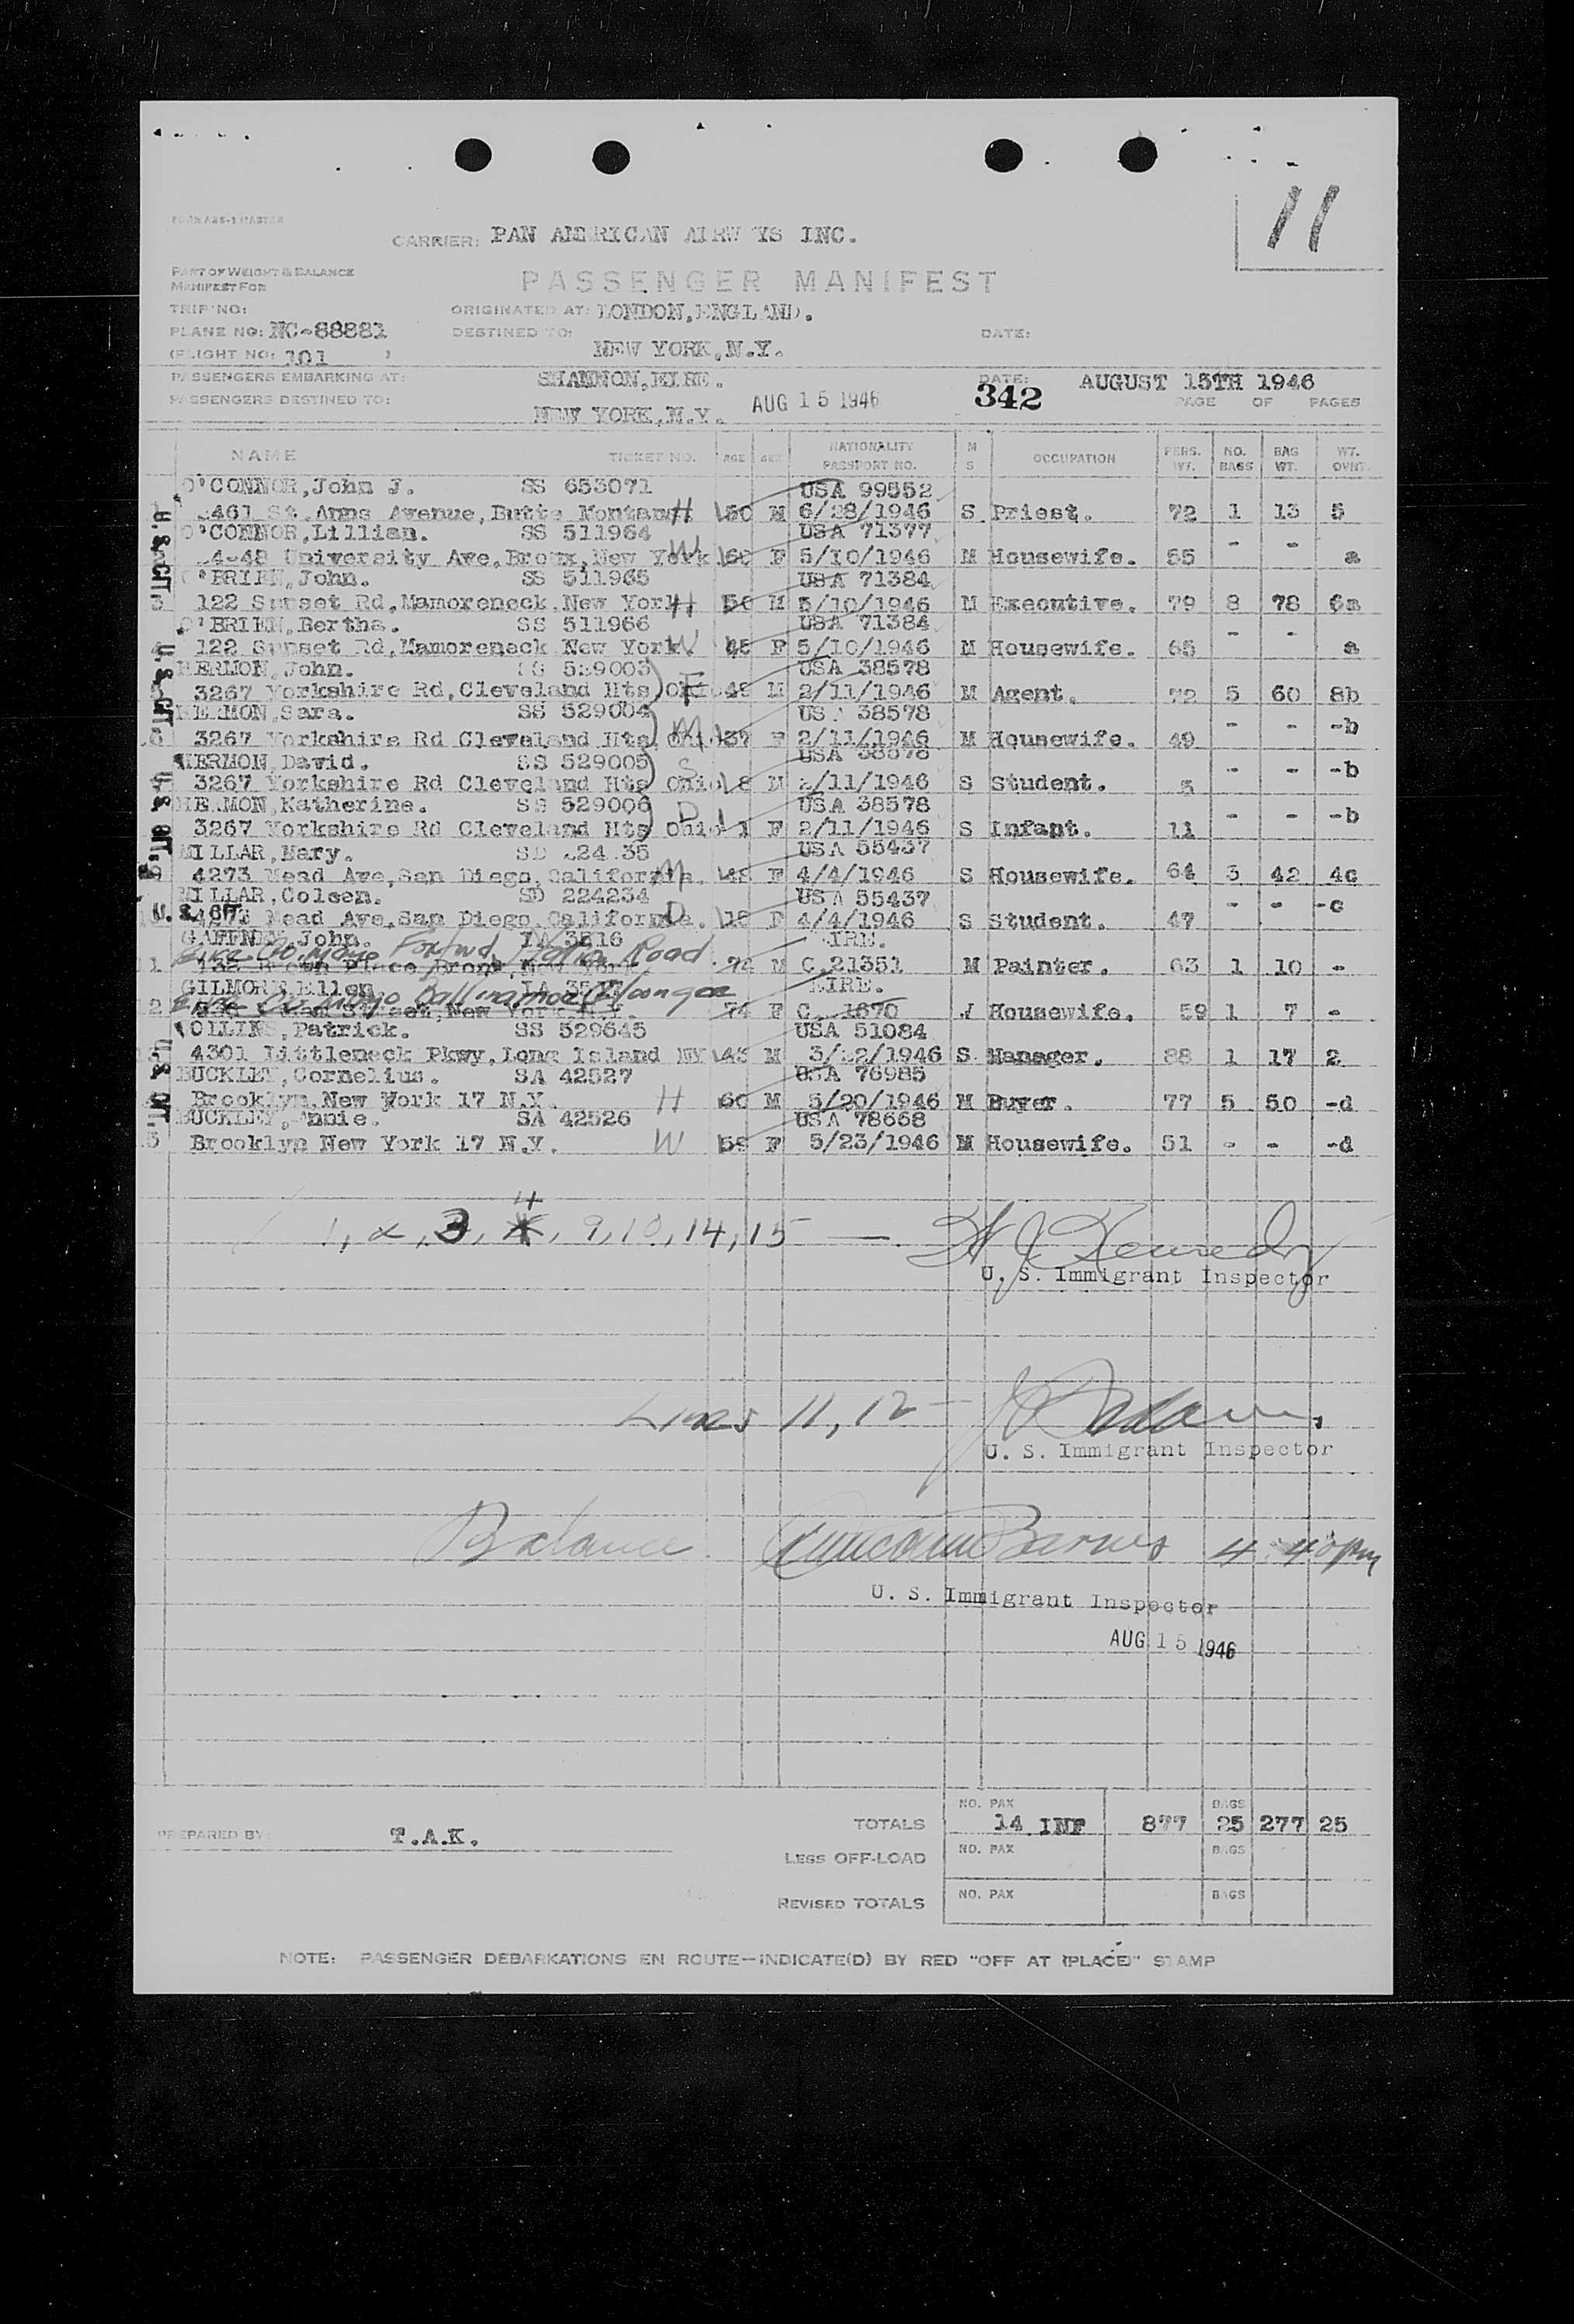 11
FORM ABS-1 MASTER
CARRIER: PAN AMERICAN AIRW YS INC.
PART OF WEIGHT & BALANCE
MANIFEST FOR
PASSENGER MANIFEST
TRIP NO: ORIGINATED AT: LONDON,ENGLAND.
PLANE NO: NC-88881 DESTINED TO: DATE:
(FLIGHT NO: 101 ) NEW YORK,N.Y.
PASSENGERS EMBARKING AT: SHANNON,EIRE. DATE: AUGUST 15TH 1946
PASSENGERS DESTINED TO: NEW YORK,N.Y. AUG 15 1946 342 PAGE OF PAGES
NAME TICKET NO. AGE SEX NATIONALITY PASSPORT NO. M S OCCUPATION PERS. WT. NO. BAGS BAG WT. WT. OVHT.
O'CONNOR,John J. SS 653071 USA 99552
461 St.Anns Avenue,Butte Montana H 50 M 6/28/1946 S Priest. 72 1 13 5
O'CONNOR,Lillian. SS 511964 USA 71377
4-48 University Ave,Bronx,New York W 60 F 5/10/1946 M Housewife. 55 - - a
O'BRIEN,John. SS 511965 USA 71384
122 Sunset Rd,Mamoreneck,New York H 56 M 5/10/1946 M Executive. 79 8 78 6a
O'BRIEN,Bertha. SS 511966 USA 71384
122 Sunset Rd,Mamoreneck New York. W 45 F 5/10/1946 M Housewife. 65 - - a
HERMON,John. SS 529003 USA 38578
3267 Yorkshire Rd,Cleveland Hts Ohio F 49 M 2/11/1946 M Agent. 72 5 60 8b
HERMON,Sara. SS 529004 USA 38578
3267 Yorkshire Rd Cleveland Hts Ohio M 37 F 2/11/1946 M Housewife. 49 - - -b
HERMON,David. SS 529005 USA 38578
3267 Yorkshire Rd Cleveland Hts Ohio S 8 M 2/11/1946 S Student. 5 - - -b
HERMON,Katherine. SS 529006 USA 38578
3267 Yorkshire Rd Cleveland Hts Ohio D 1 F 2/11/1946 S Infant. 11 - - -b
MILLAR,Mary. SD 224 35 USA 55437
4273 Mead Ave,San Diego,California. M 48 F 4/4/1946 S Housewife. 64 3 42 4c
MILLAR,Coleen. SD 224234 USA 55437
4273 Mead Ave,San Diego,California. D 18 F 4/4/1946 S Student. 47 - - -c
GAFFNEY,John. IA 3516 EIRE.
Eire Co. Mayo Foxford, Station Road.
138 Brown Place,Bronx,New York 74 M C.21351 M Painter. 63 1 10 -
GILMORE,Ellen IA EIRE.
Eire Co. Mayo Ballinamore Cloongee
Street,New York N.Y. 74 F C. 1670 W Housewife. 59 1 7 -
COLLINS,Patrick. SS 529645 USA 51084
4301 Littleneck Pkwy,Long Island NY 43 M 3/22/1946 S Manager. 88 1 17 2
BUCKLEY,Cornelius. SA 42527 USA 76985
Brooklyn,New York 17 N.Y. H 60 M 5/20/1946 M Buyer. 77 5 50 -d
BUCKLEY,Annie. SA 42526 USA 78658
Brooklyn New York 17 N.Y. W 59 F 5/23/1946 M Housewife. 51 - - -d
1, 2, 3, 4, 9, 10, 14, 15 — H J Kennedy
U. S. Immigrant Inspector
Lines 11, 12 -
U. S. Immigrant Inspector
Balance Duncan Barnes 4:40 pm
U. S. Immigrant Inspector
AUG 15 1946
PREPARED BY: T.A.K. TOTALS NO. PAX 14 INF 877 BAGS 25 277 25
LESS OFF-LOAD NO. PAX BAGS
REVISED TOTALS NO. PAX BAGS
NOTE: PASSENGER DEBARKATIONS EN ROUTE—INDICATE(D) BY RED "OFF AT (PLACE)" STAMP